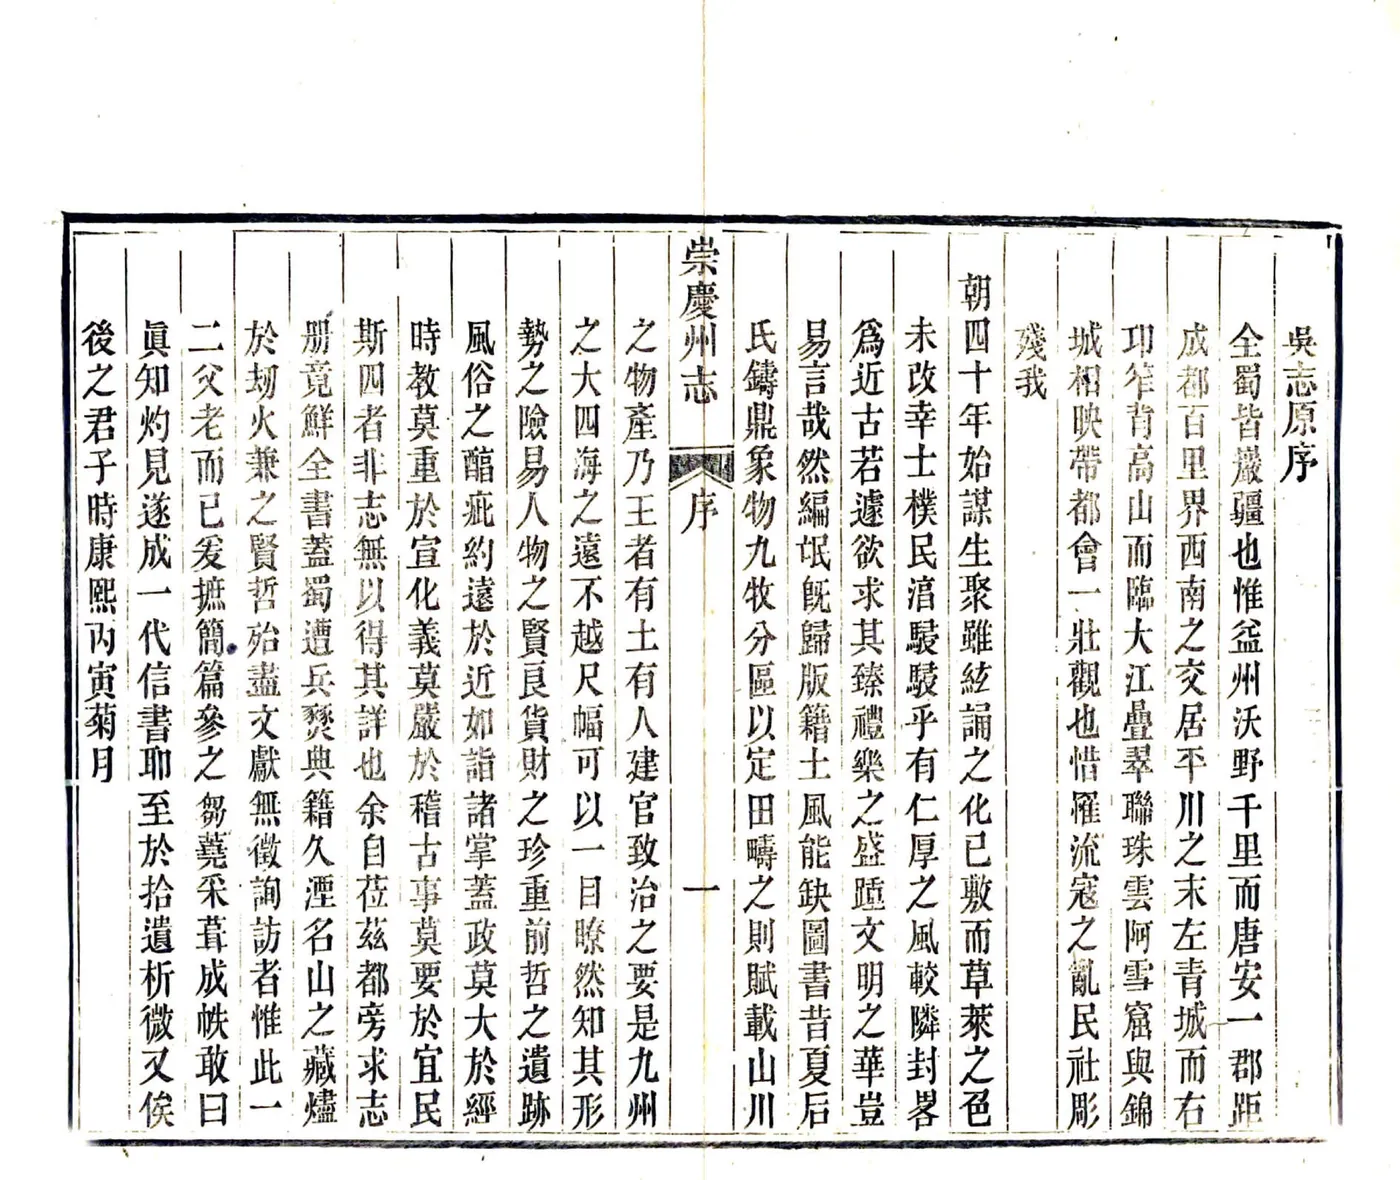 吳志原序
全蜀皆巖疆也惟益州沃野千里而唐安一郡距
成都百里界西南之交居平川之末左青城而右
卭筰背高山而臨大江疊翠聯珠雲阿雪窟與錦
城相映帶都會一壯觀也惜罹流寇之亂民社彫
殘我
朝四十年始謀生聚雖絃誦之化已敷而草萊之色
未改幸士樸民湻駸駸乎有仁厚之風較隣封畧
爲近古若遽欲求其臻禮樂之盛踵文明之華豈
易言哉然編氓旣歸版籍土風能缺圖書昔夏后
氏鑄鼎象物九牧分區以定田疇之則賦載山川
崇慶州志
序
一
之物產乃王者有土有人建官致治之要是九州
之大四海之遠不越尺幅可以一目瞭然知其形
勢之險易人物之賢良貨財之珍重前哲之遺跡
風俗之醕疵約遠於近如詣諸掌蓋政莫大於經
時教莫重於宣化義莫嚴於稽古事莫要於宜民
斯四者非志無以得其詳也余自莅茲都旁求志
册竟鮮全書蓋蜀遭兵燹典籍久湮名山之藏燼
於刼火兼之賢哲殆盡文獻無徵詢訪者惟此一
二父老而已爰摭簡篇參之芻蕘采葺成帙敢曰
眞知灼見遂成一代信書耶至於拾遺析微又俟
後之君子時康熙丙寅菊月